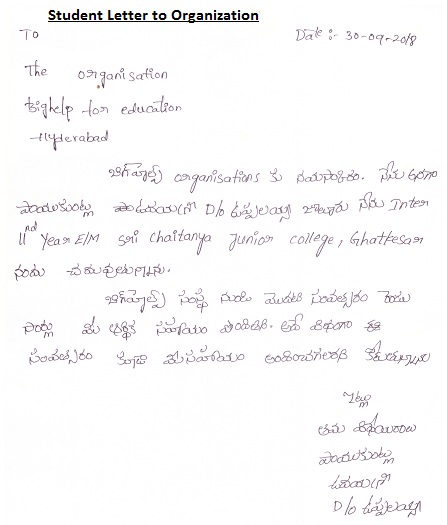 Student Letter to Organization
TO Date :- 30-09-2018
The organisation
Bighelp for education
Hyderabad
బిగ్‌హెల్ప్ organisations కు నమస్కారం. నేను అనగా
పాయకుంట్ల D/o ఉప్పలయ్య నేను Inter
IInd Year E/M Sri Chaitanya Junior college, Ghatkesar
నందు చదువుతున్నాను.
బిగ్‌హెల్ప్ సంస్థ నుండి మొదటి సంవత్సరం రెండు
మీ ఆర్థిక సహాయం పొందితిని. అదే విధంగా ఈ
సంవత్సరం కూడా మీ సహాయం అందించగలరని కోరుతున్నాను
ఇట్లు
తమ విధేయురాలు
పాయకుంట్ల
D/o ఉప్పలయ్య